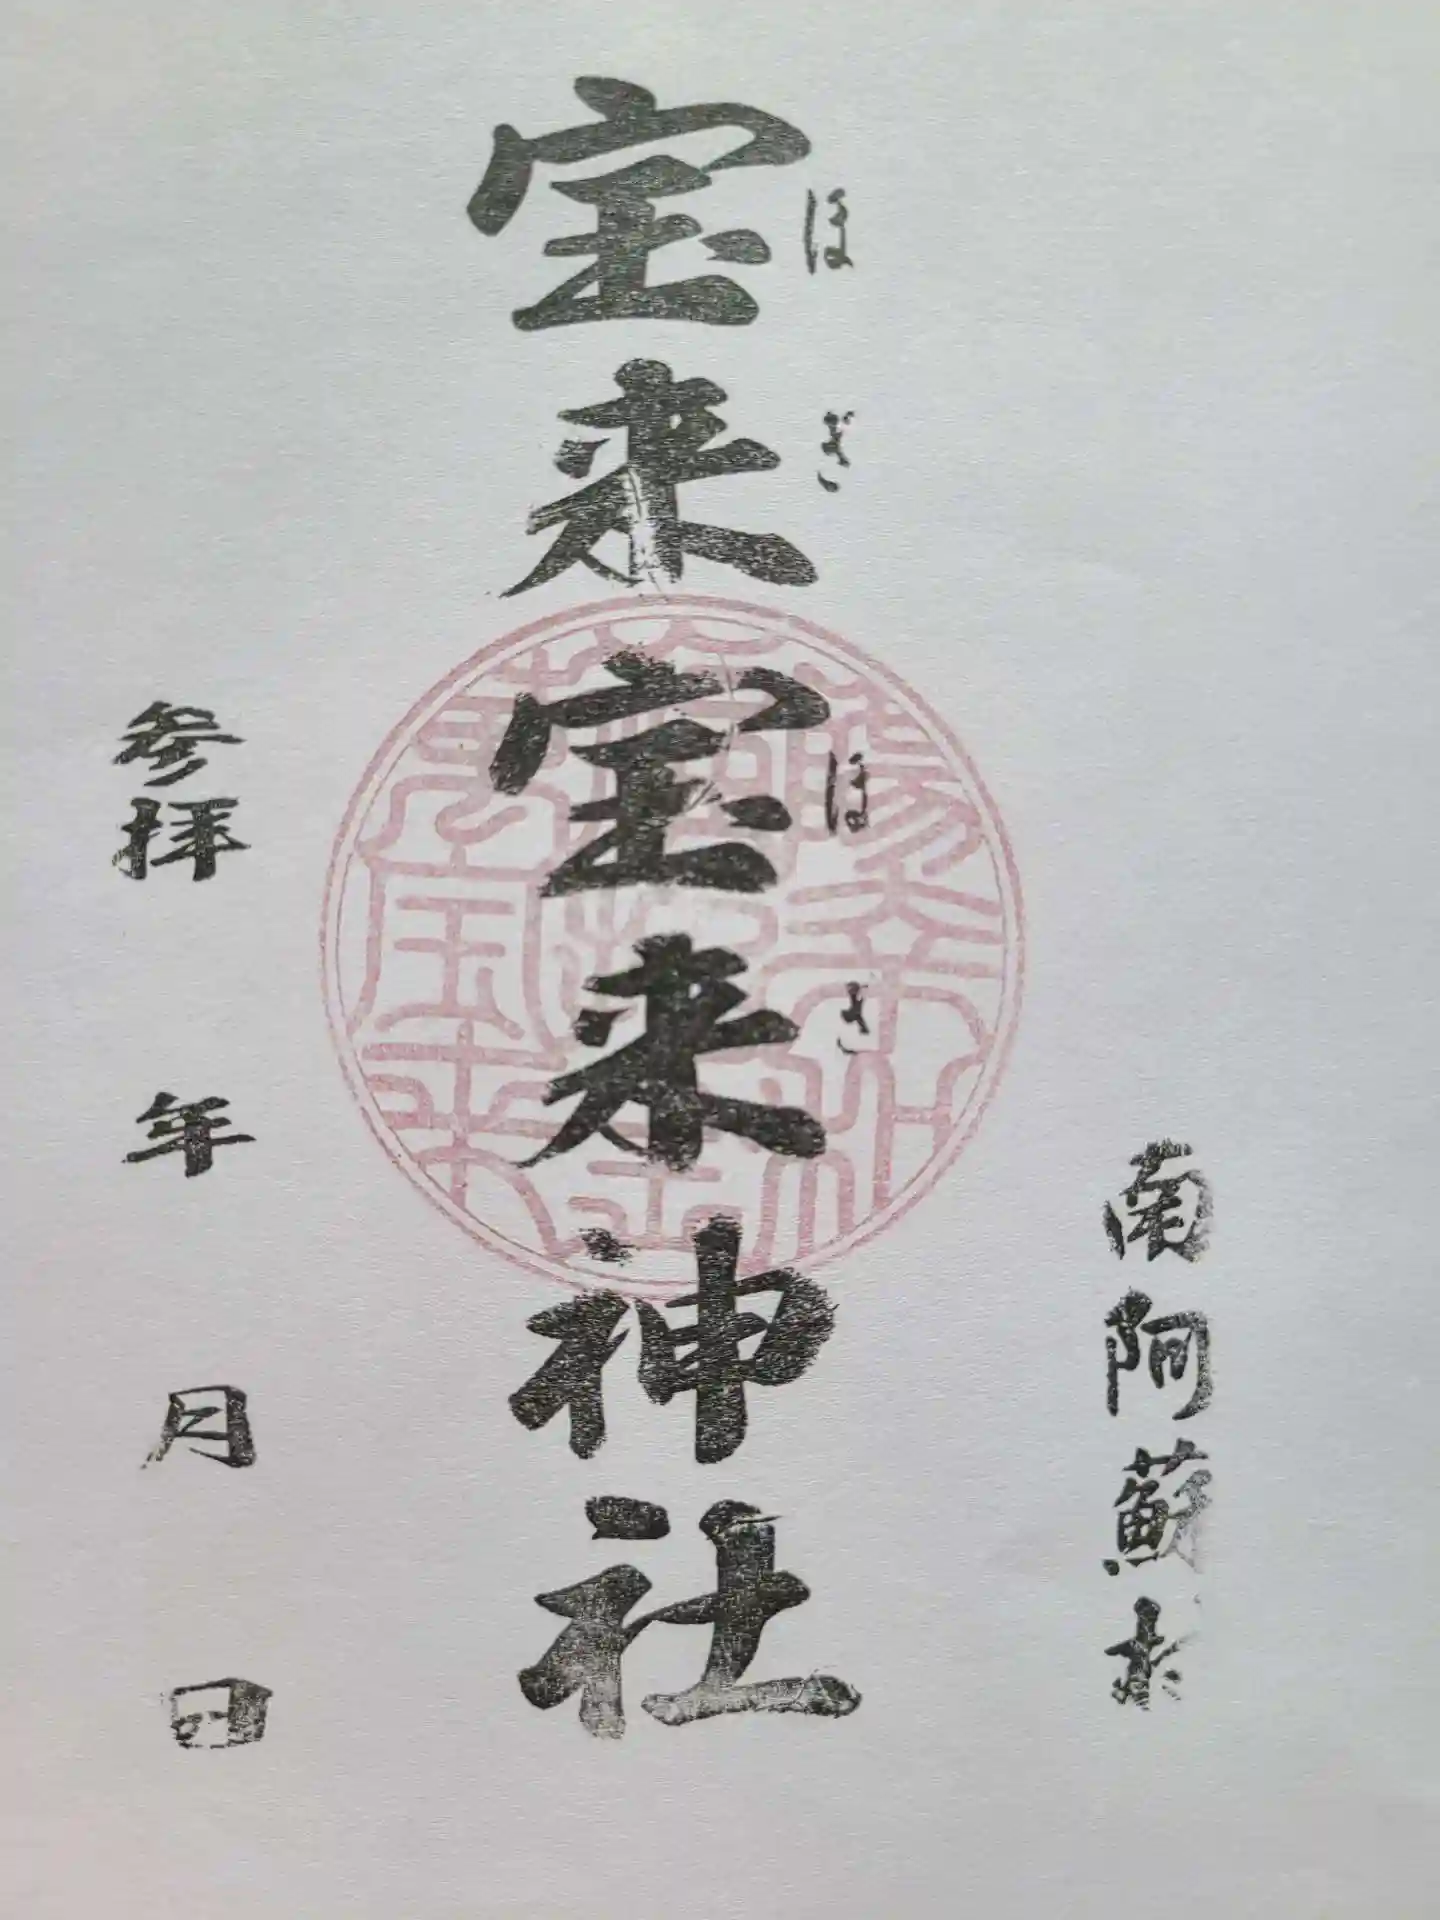 南阿蘇村
ほぎほき
宝来宝来神社
参拝 年 月 日